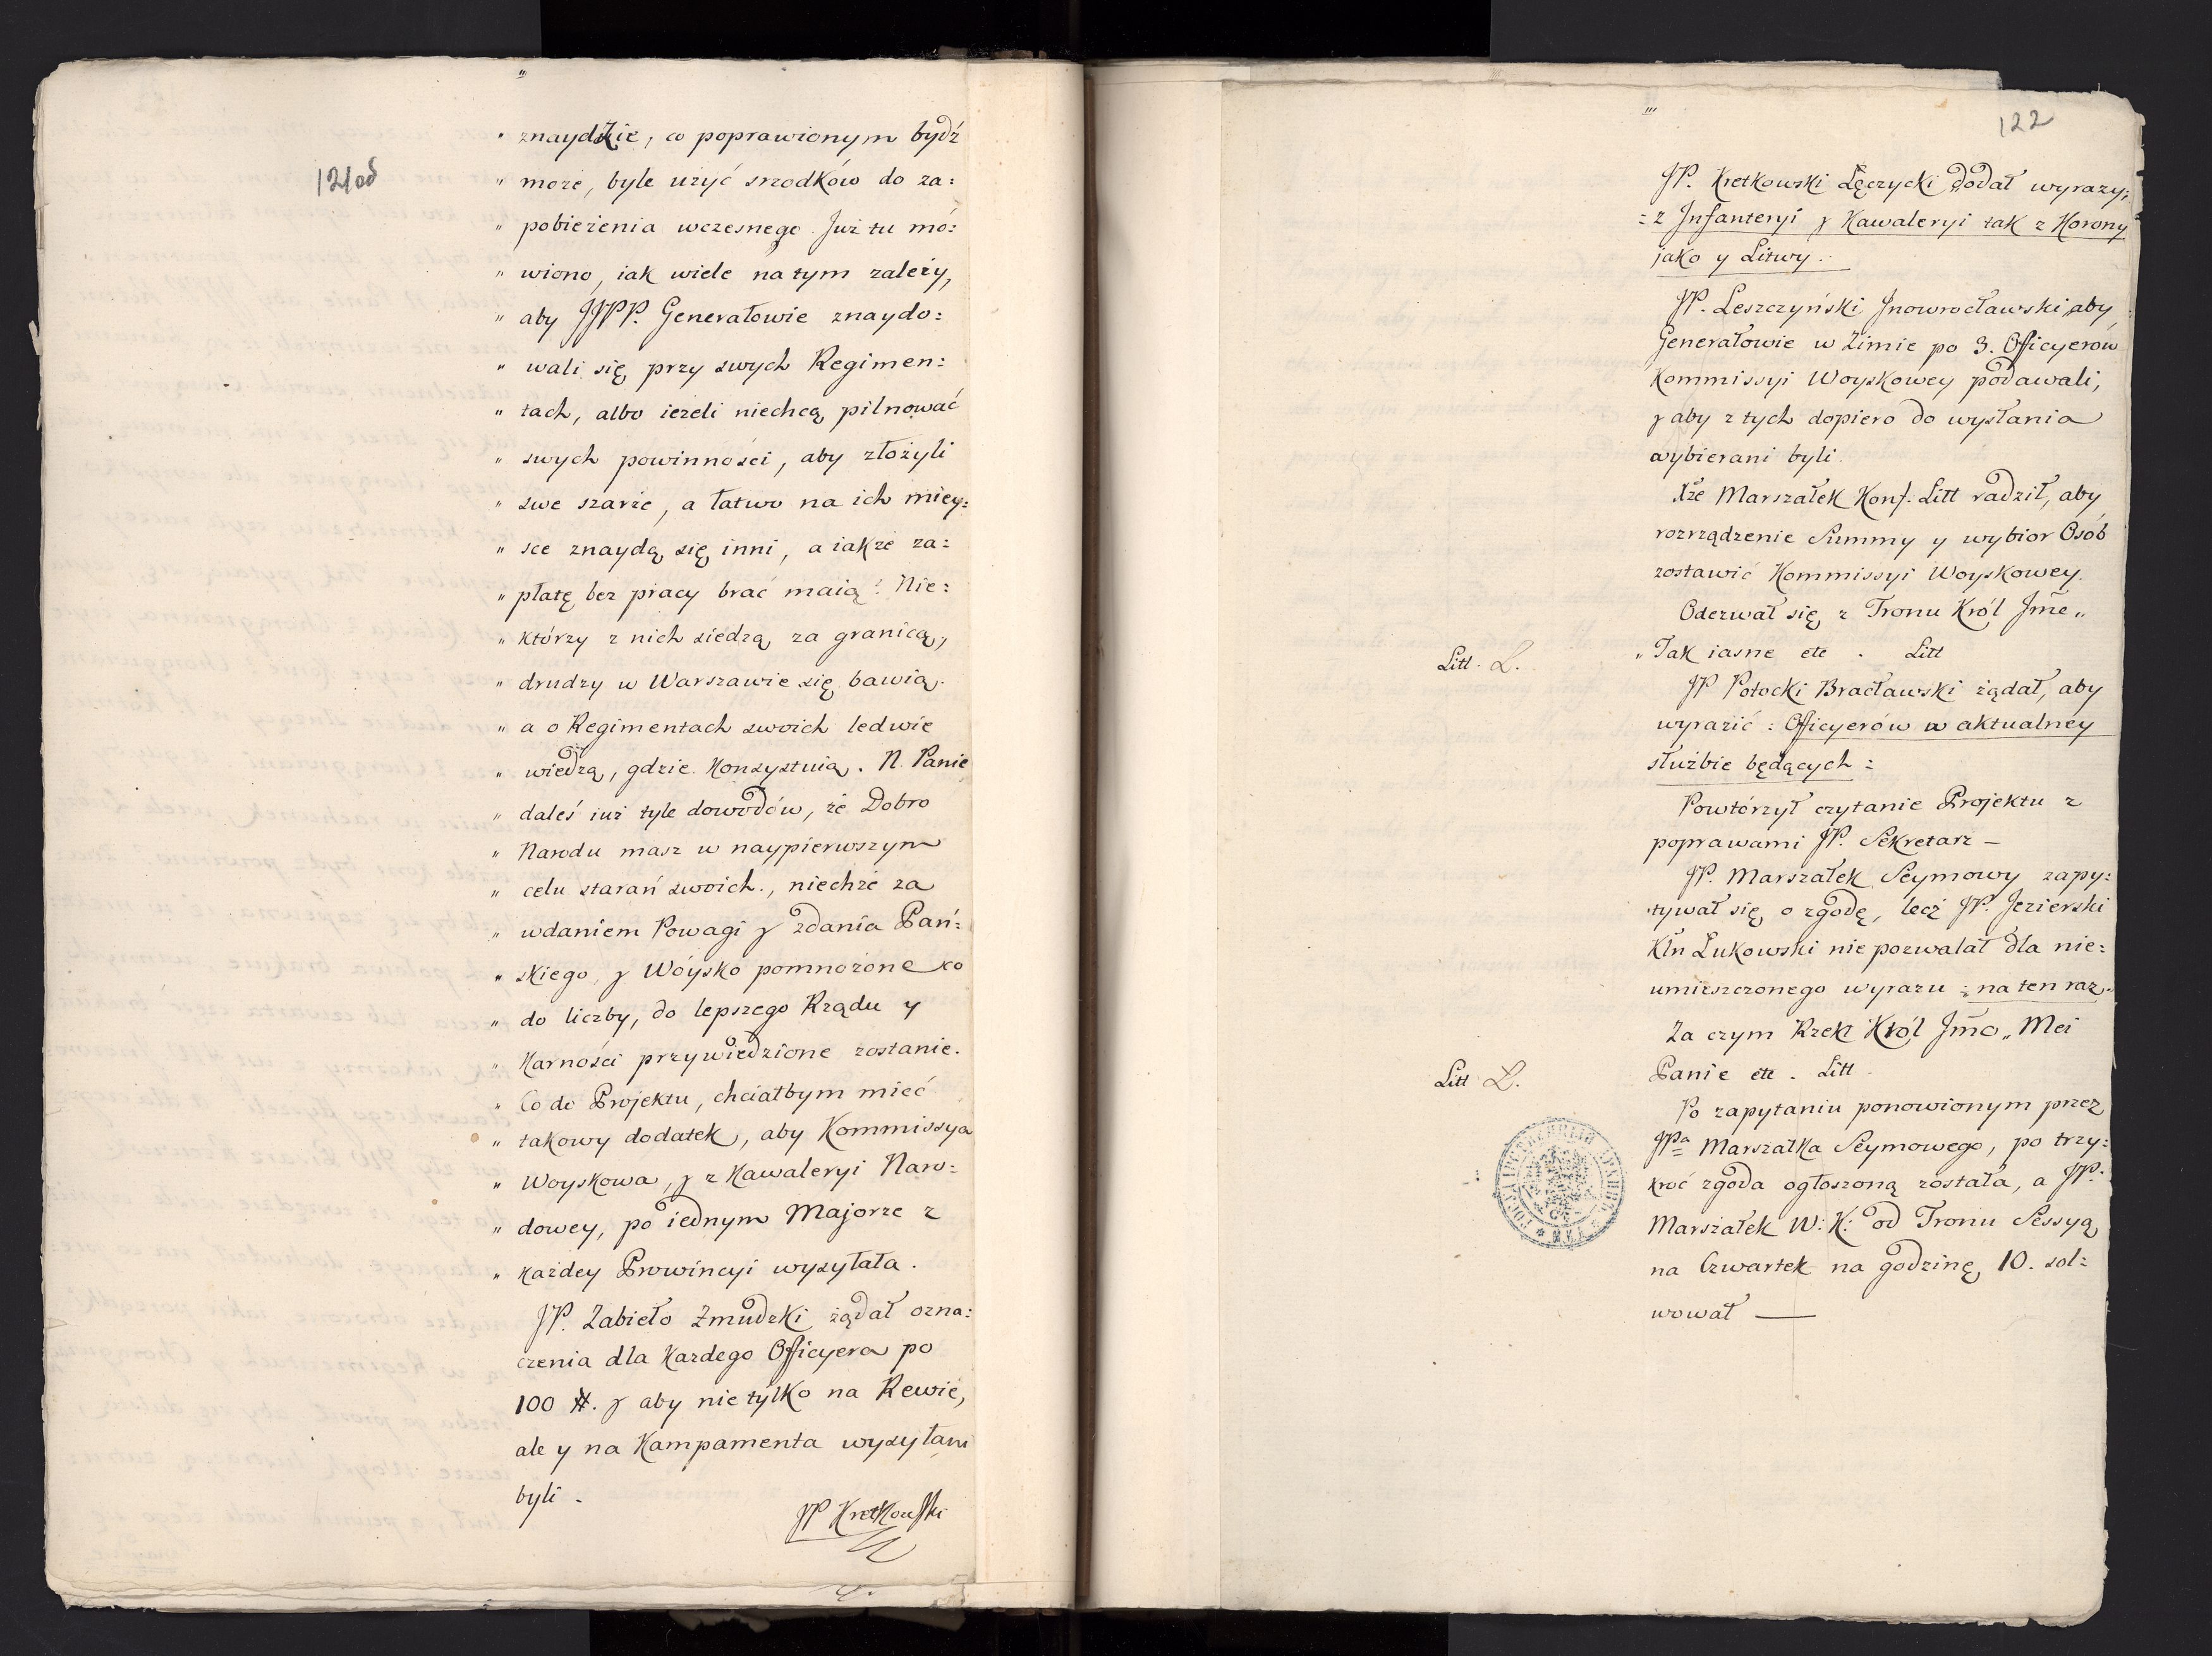 "
121od
" znaydzie, co poprawionym bydź
" może, byle użyć srzodków do za:
" pobieżenia wczesnego. Już tu mó:
" wiono, iak wiele na tym zależy,
" aby JJPP. Generałowie znaydo:
" wali się przy swych Regimen:
" tach, albo ieżeli niechcą pilnować
" swych powinności, aby złożyli
" swe szarże, a łatwo na ich miey:
" sce znaydą się inni, a iakże za:
" płatę bez pracy brać maią? Nie:
" którzy z nich siedzą za granicą,
" drudzy w Warszawie się bawią.
" a o Regimentach swoich ledwie
" wiedzą, gdzie Konsystuią. N. Panie
" daleś iuż tyle dowodów, że Dobro
" Narodu masz w naypierwszym
" celu starań swoich., niechże za
" wdaniem Powagi y zdania Pań:
" skiego, y Woysko pomnożone co
" do liczby, do lepszego Rządu y
" Karności przywiedzione zostanie.
" Co do Projektu, chciałbym mieć
" takowy dodatek, aby Kommissya
" Woyskowa, y z Kawaleryi Naro:
" dowey, po iednym Majorze z
" każdey Prowincyi wysyłała.
JP. Zabieło Zmudzki żądał ozna:
czenia dla Każdego Officyera po
100 #. y aby nie tylko na Rewie,
ale y na Kampamenta wysyłani
byli.
JP Kretkowski
122
JP. Kretkowski Łęczycki dodał wyrazy;
= z Infanteryi y Kawaleryi tak z Korony
jako y Litwy.
JP. Leszczyński Inowrocławski, aby
Generałowie w Zimie po 3. Officyerów
Kommissyi Woyskowey podawali,
y aby z tych dopiero do wysłania
wybierani byli.
Xże Marszałek Konf. Litt radził, aby
rozrządzenie Summy y wybior Osób
zostawić Kommissyi Woyskowey.
Odezwał się z Tronu Król Jmē„
Litt. L.
„ Tak iasne etc. Litt
JP Potocki Bracławski żądał, aby
wyrazić: Officyerów w aktualney
służbie będących:
Powtórzył czytanie Projektu z
poprawami JP. Sekretarz –
JP. Marszałek Seymowy zapy:
tywał się o zgodę, lecz JP. Jezierski
Kłn Łukowski nie pozwalał dla nie:
umieszczonego wyrazu „na ten raz.
Za czym Rzekł Król Jmo „Mci
Litt Ł.
Panie etc. Litt
Po zapytaniu ponowionym przez
JPa Marszałka Seymowego, po trzy:
kroć zgoda ogłoszoną została, a JP.
Marszałek W: K: od Tronu Sessyą
na Czwartek na godzinę 10. sol:
wował —